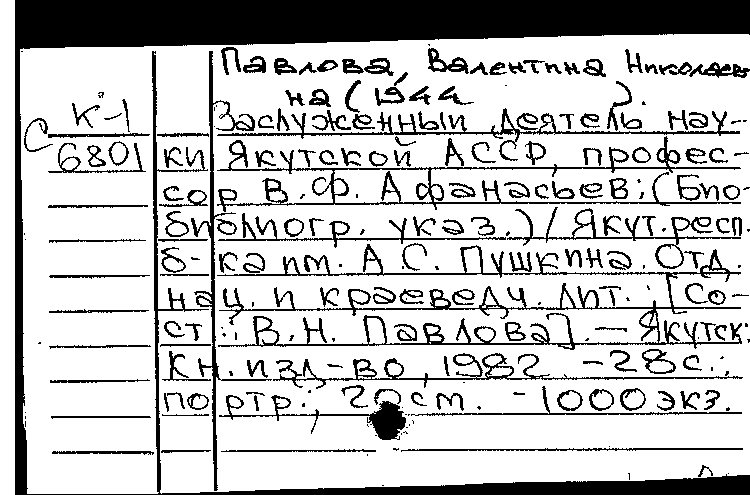 Павлова, Валентина Николаев-
на (1944        ).
К-1 Заслуженный деятель нау-
С 6801 ки Якутской АССР, профес-
сор В.Ф. Афанасьев: (Био-
библиогр. указ.) / Якут. респ.
б-ка им. А.С. Пушкина. Отд.
нац. и краеведч. лит.; [Со-
ст.: В.Н. Павлова]. — Якутск:
Кн. изд-во, 1982. - 28 с.:
портр.; 20 см. - 1000 экз.